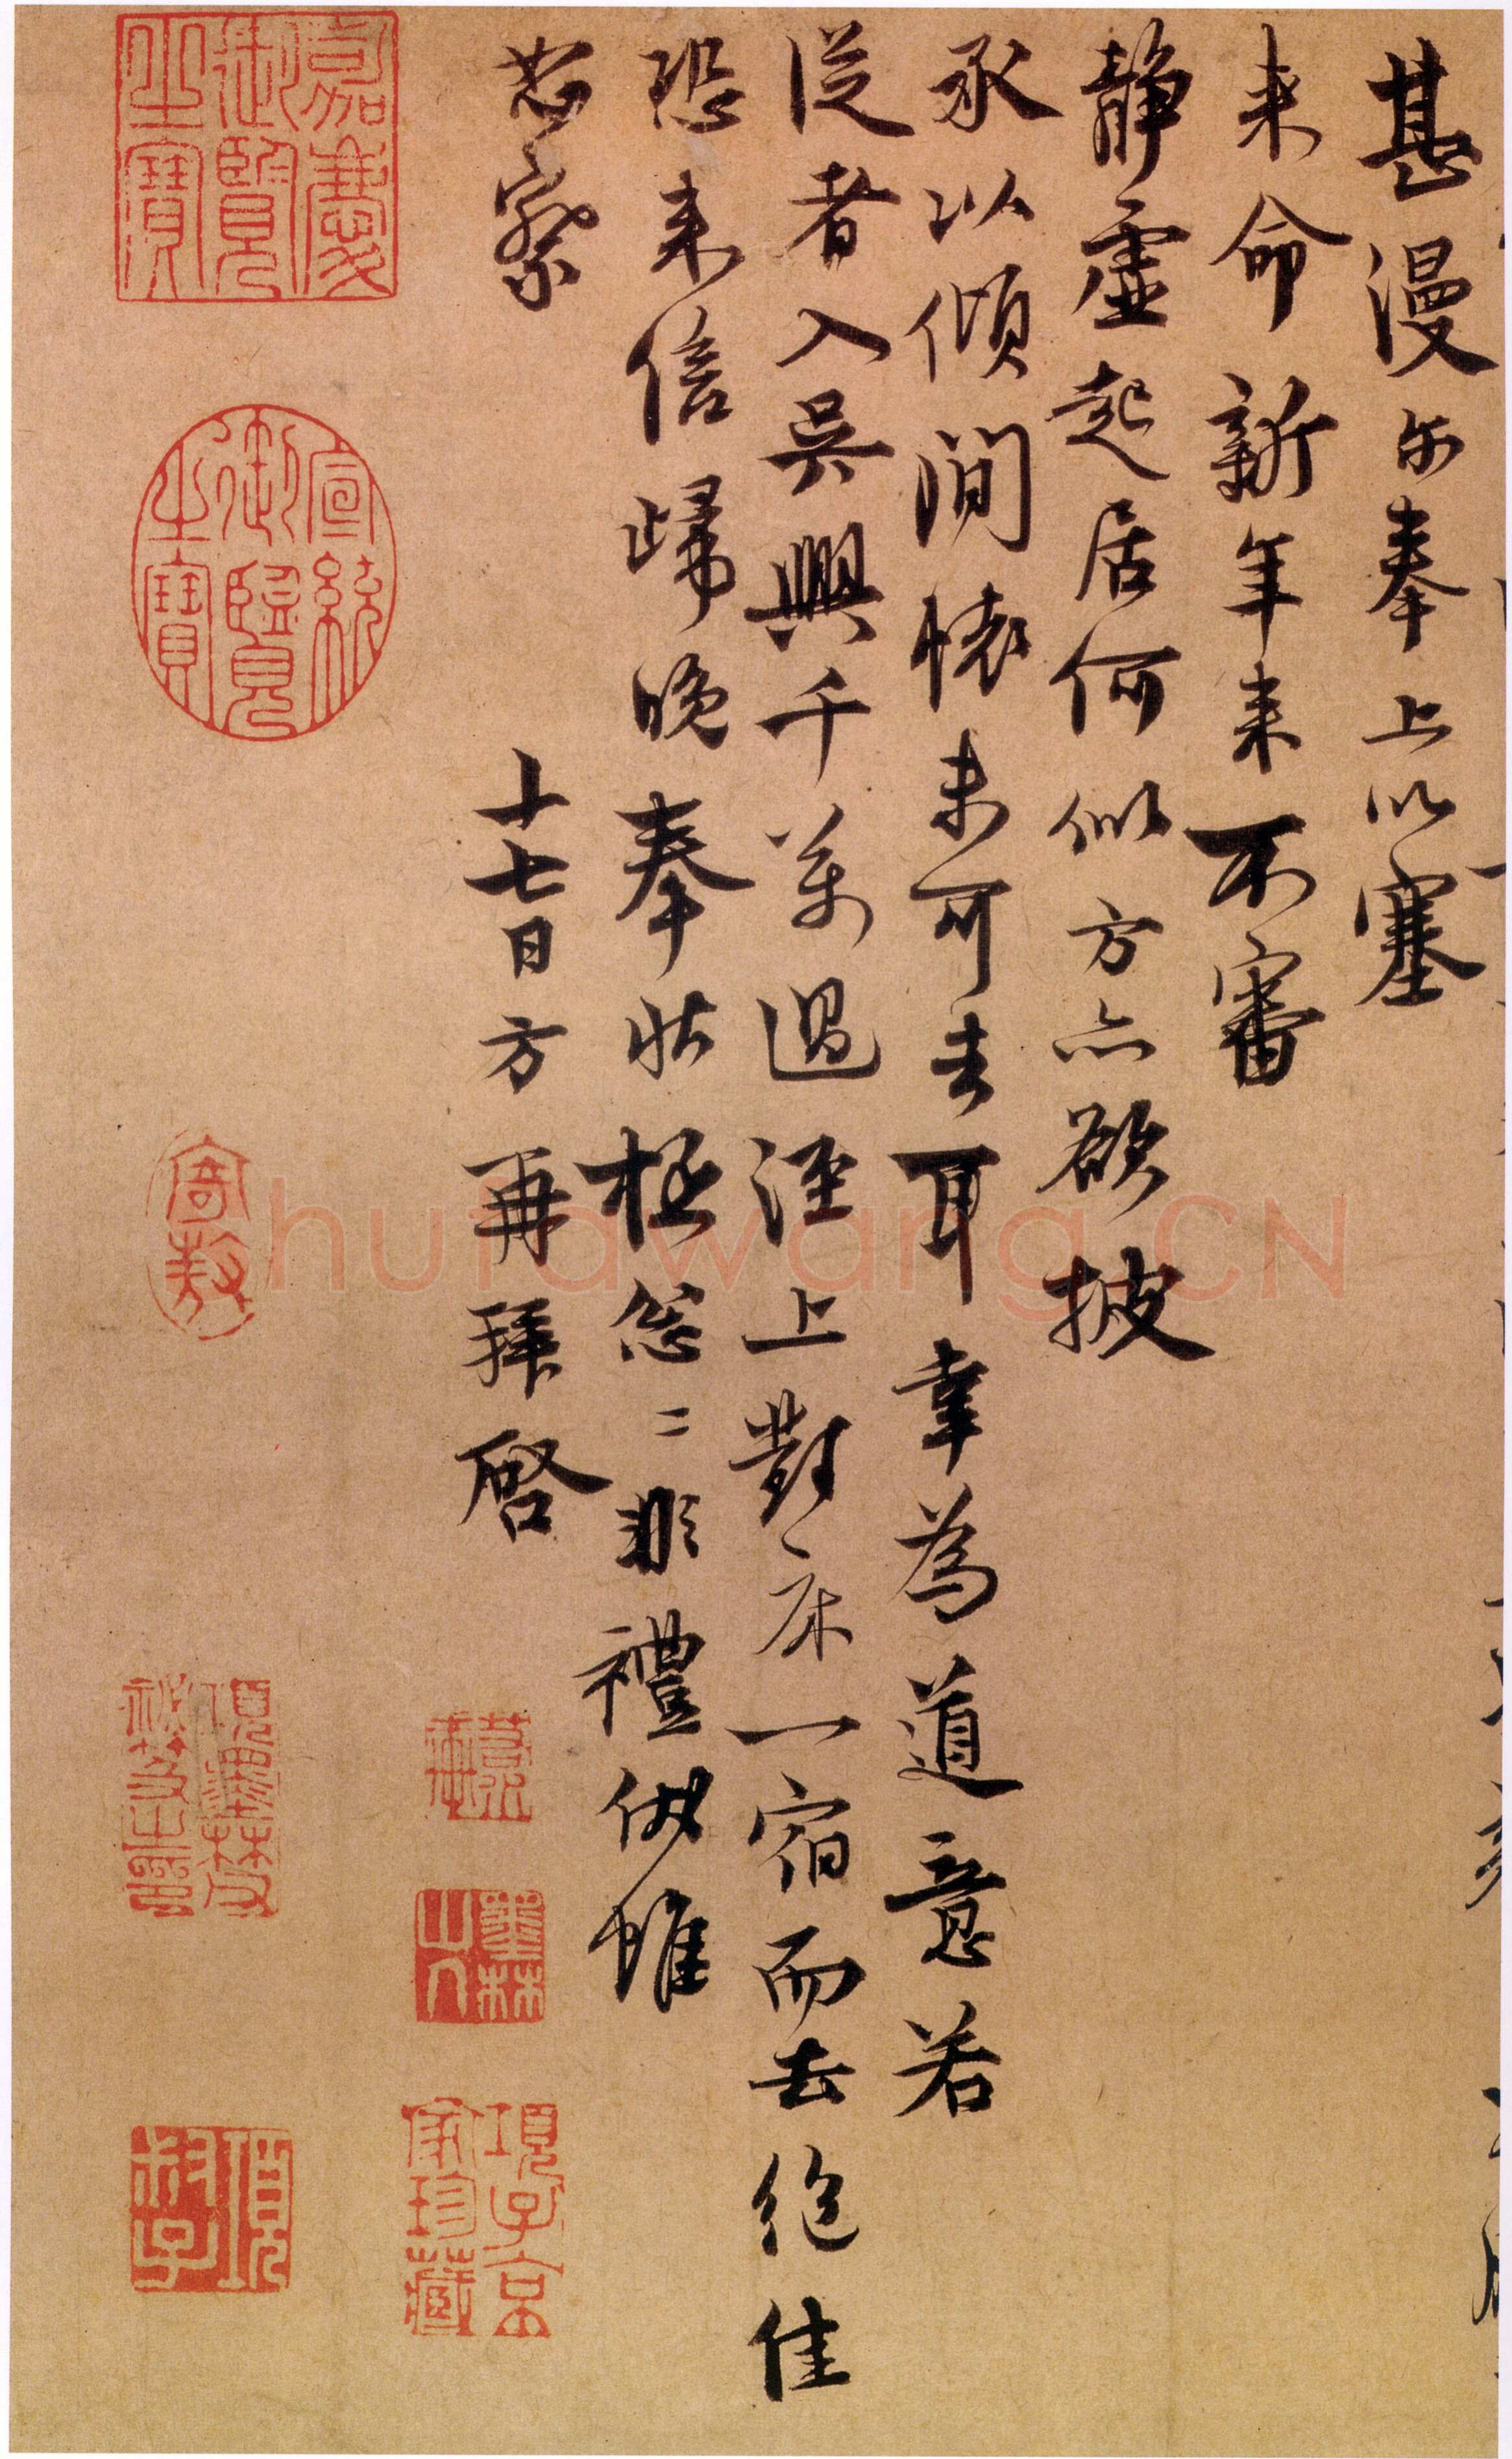 甚漫尔奉上以塞
来命新年来不審
静虚起居何似方亦欲披
承以傾渴懐未可去耳幸為道意若
從者入吴興千萬過涇上對床一宿而去絶佳
恐来信歸晚奉狀極怱〻非禮伏惟
恕察
十七日方再拜啓
嘉慶御覽之寶
宣統御覽之寶
寄敖
項墨林父祕笈之印
墨林山人
項子京家珍藏
hufawang.CN